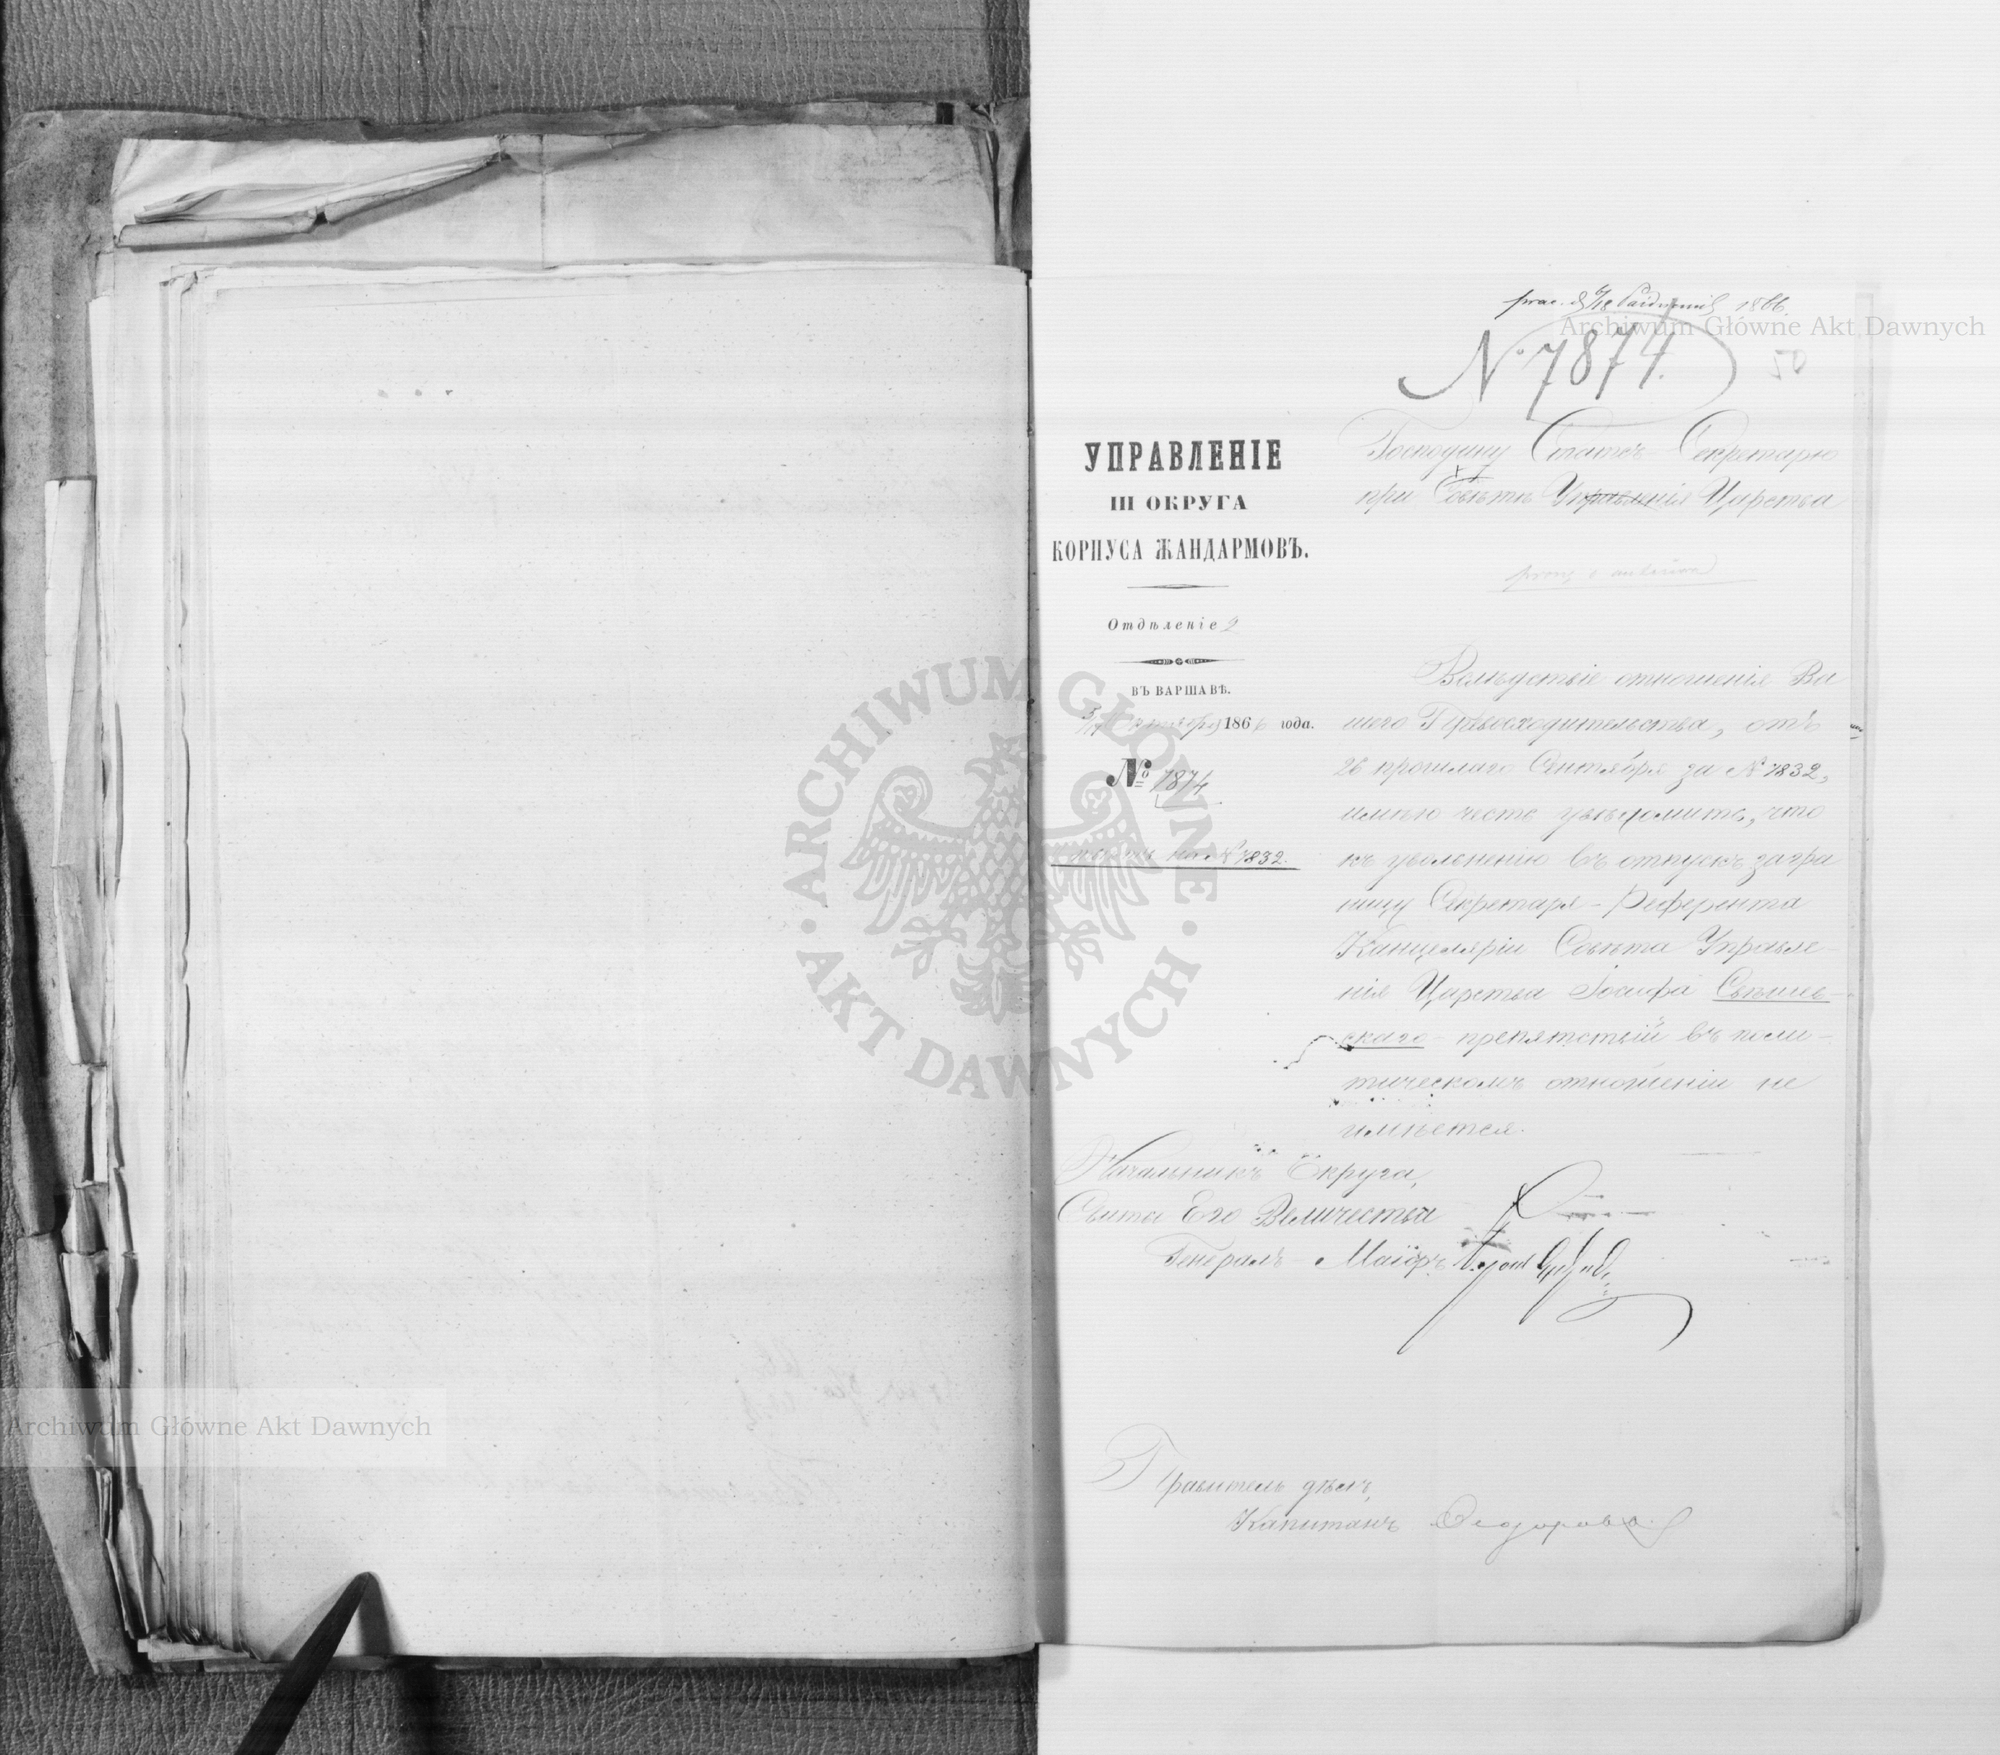 6/18 Października 1866.
№ 7874.
50
УПРАВЛЕНІЕ
III ОКРУГА
КОРПУСА ЖАНДАРМОВЪ.
Отдѣленіе 2
ВЪ ВАРШАВѢ.
Октября 1866 года.
№ 7874
на № 7832.
Господину Статсъ Секретарю
при Совѣтѣ Управленія Царства
Вслѣдствіе отношенія Ва
шего Превосходительства, отъ
26 прошлаго Сентября за № 7832,
имѣю честь увѣдомить, что
къ увольненію въ отпускъ загра
ницу Секретаря-Референта
Канцеляріи Совѣта Управле-
нія Царства Іосифа
скаго - препятствій въ поли-
тическомъ отношеніи не
имѣется.
Начальникъ Округа,
Свиты Его Величества
Генералъ-Маіоръ
Правитель дѣлъ,
Капитанъ Федоровъ
Archiwum Główne Akt Dawnych
ARCHIWUM GŁÓWNE · AKT DAWNYCH ·
Archiwum Główne Akt Dawnych